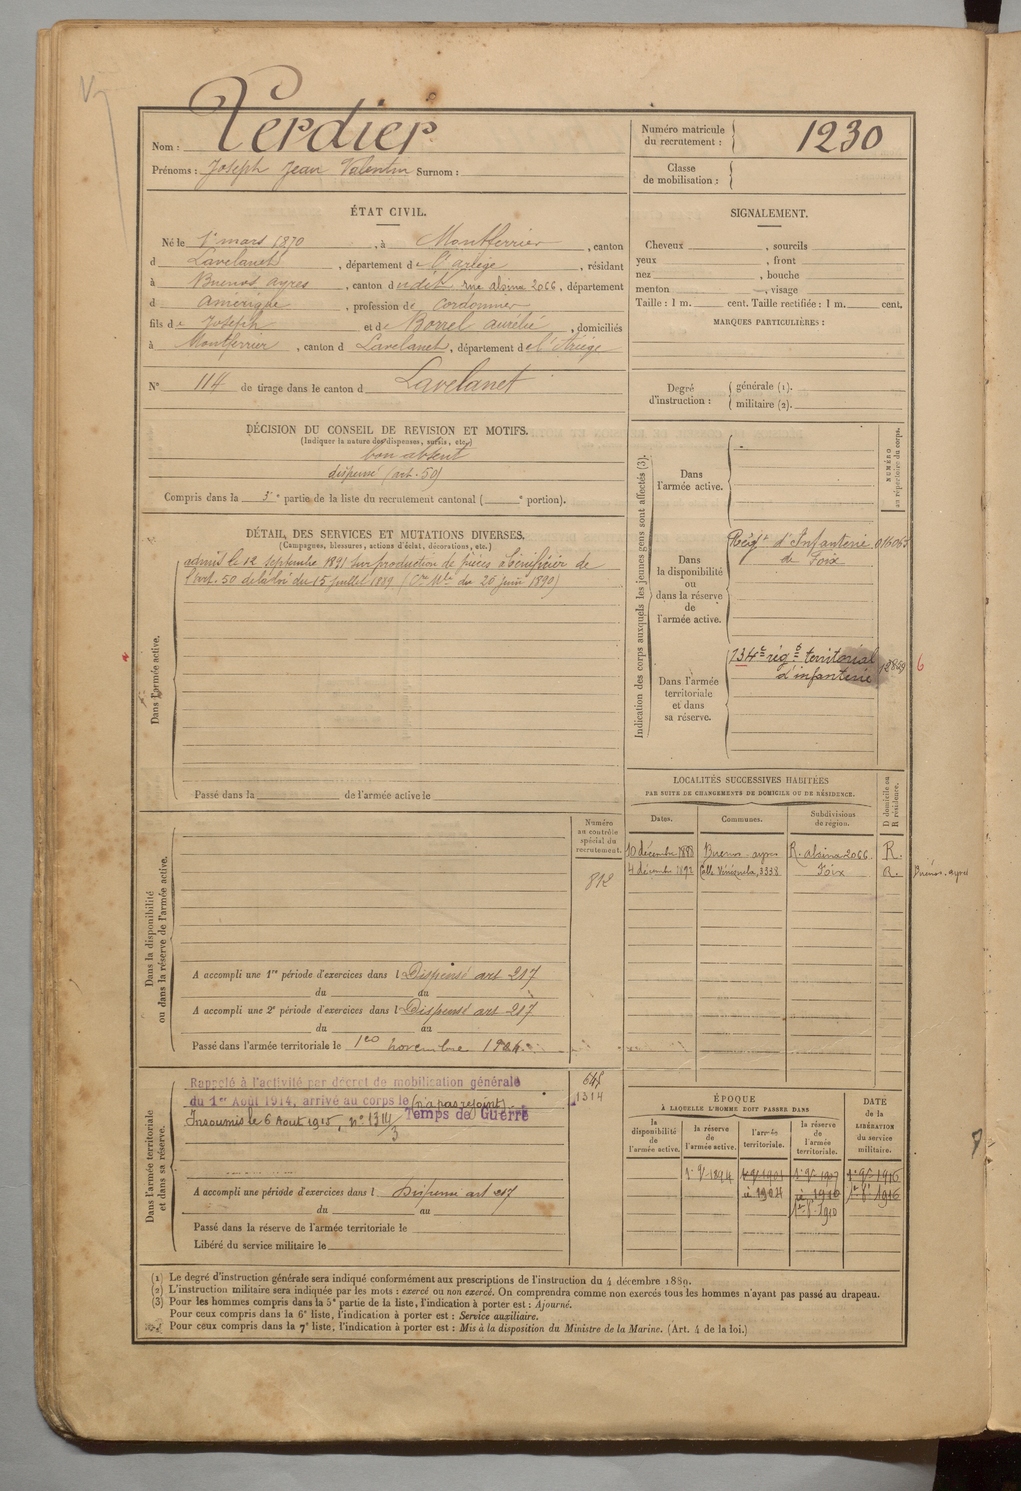 Nom : Verdier
Prénoms : Joseph Jean Valentin Surnom :
Numéro matricule du recrutement : 1230
Classe de mobilisation :
ÉTAT CIVIL.
Né le 1er mars 1870, à Montferrier, canton
d Lavelanet, département de l'ariège, résidant
à Buenos ayres, canton dudit rue alsina 2066, département
d Amérique, profession de Cordonnier
fils de Joseph et de Borrel aurélie, domiciliés
à Montferrier, canton d Lavelanet, département de l'Ariège
N° 114 de tirage dans le canton d Lavelanet
SIGNALEMENT.
Cheveux , sourcils
yeux , front
nez , bouche
menton , visage
Taille : 1 m. cent. Taille rectifiée : 1 m. cent.
MARQUES PARTICULIÈRES :
Degré d'instruction : générale (1).
militaire (2).
DÉCISION DU CONSEIL DE REVISION ET MOTIFS.
(Indiquer la nature des dispenses, sursis, etc.)
bon absent
dispensé (art. 50)
Compris dans la 5e partie de la liste du recrutement cantonal ( e portion).
DÉTAIL DES SERVICES ET MUTATIONS DIVERSES.
(Campagnes, blessures, actions d'éclat, décorations, etc.)
Dans l'armée active.
admis le 12 septembre 1891 sur production de pièces à bénéficier de
l'art. 50 de la loi du 15 juillet 1889 (Cre Mlle du 26 juin 1890)
Passé dans la de l'armée active le
Indication des corps auxquels les jeunes gens sont affectés (3).
NUMÉRO au répertoire du corps.
Dans l'armée active.
Dans la disponibilité ou dans la réserve de l'armée active.
Régt d'Infanterie de Foix
Dans l'armée territoriale et dans sa réserve.
134e rég t territorial d'infanterie
6
LOCALITÉS SUCCESSIVES HABITÉES
PAR SUITE DE CHANGEMENTS DE DOMICILE OU DE RÉSIDENCE.
Dates. Communes. Subdivisions de région. D domicile ou R résidence.
10 décembre 1888 Buenos-ayres R. alsina 2066. R.
4 décembre 1892 Calle Vénézuela, 3338 Foix R. Buenos-ayres
Dans la disponibilité ou dans la réserve de l'armée active.
Numéro au contrôle spécial du recrutement.
812
A accompli une 1re période d'exercices dans l Dispensé art 217
du au
A accompli une 2e période d'exercices dans l Dispensé art 217
du au
Passé dans l'armée territoriale le 1er novembre 1904
Dans l'armée territoriale et dans sa réserve.
Rappelé à l'activité par décret de mobilisation générale
du 1er Août 1914, arrivé au corps le (n'a pas rejoint).
Temps de Guerre
Insoumis le 6 Aout 1915, n° 1314/3
1314
A accompli une période d'exercices dans l Dispensé art 217
du au
Passé dans la réserve de l'armée territoriale le
Libéré du service militaire le
ÉPOQUE
À LAQUELLE L'HOMME DOIT PASSER DANS
la disponibilité de l'armée active. la réserve de l'armée active. l'armée territoriale. la réserve de l'armée territoriale.
DATE de la LIBÉRATION du service militaire.
1er 9bre 1894 1er 9bre 1901 1er 9bre 1907 1er 9bre 1916
1904 1910 1er 8bre 1916
1er 8bre 1910
(1) Le degré d'instruction générale sera indiqué conformément aux prescriptions de l'instruction du 4 décembre 1889.
(2) L'instruction militaire sera indiquée par les mots : exercé ou non exercé. On comprendra comme non exercés tous les hommes n'ayant pas passé au drapeau.
(3) Pour les hommes compris dans la 5e partie de la liste, l'indication à porter est : Ajourné.
Pour ceux compris dans la 6e liste, l'indication à porter est : Service auxiliaire.
Pour ceux compris dans la 7e liste, l'indication à porter est : Mis à la disposition du Ministre de la Marine. (Art. 4 de la loi.)